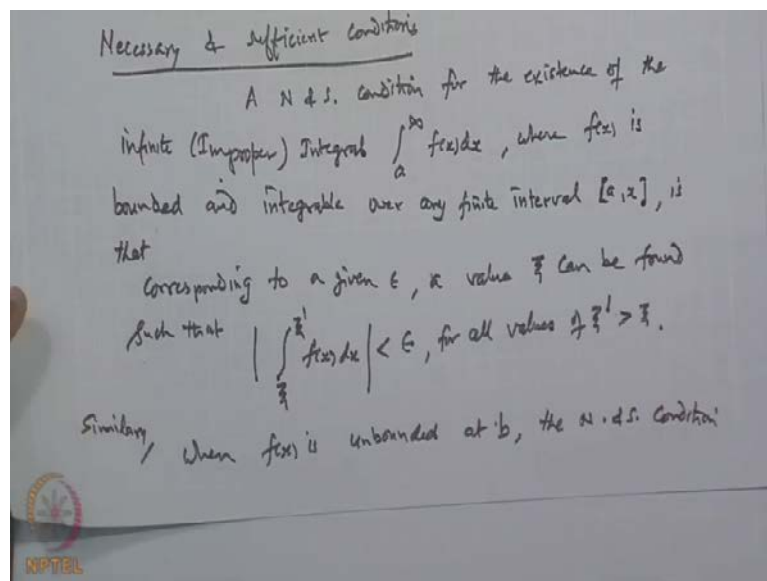 Necessary & sufficient conditions
A N & S. condition for the existence of the
infinite (Improper) Integral ∫_a^∞ f(x)dx, where f(x) is
bounded and integrable over any finite interval [a,x], is
that
corresponding to a given ε, a value ξ can be found
such that |∫_ξ^ξ' f(x)dx| < ε, for all values of ξ' > ξ.
Similary, when f(x) is unbounded at b, the N. & S. condition
NPTEL